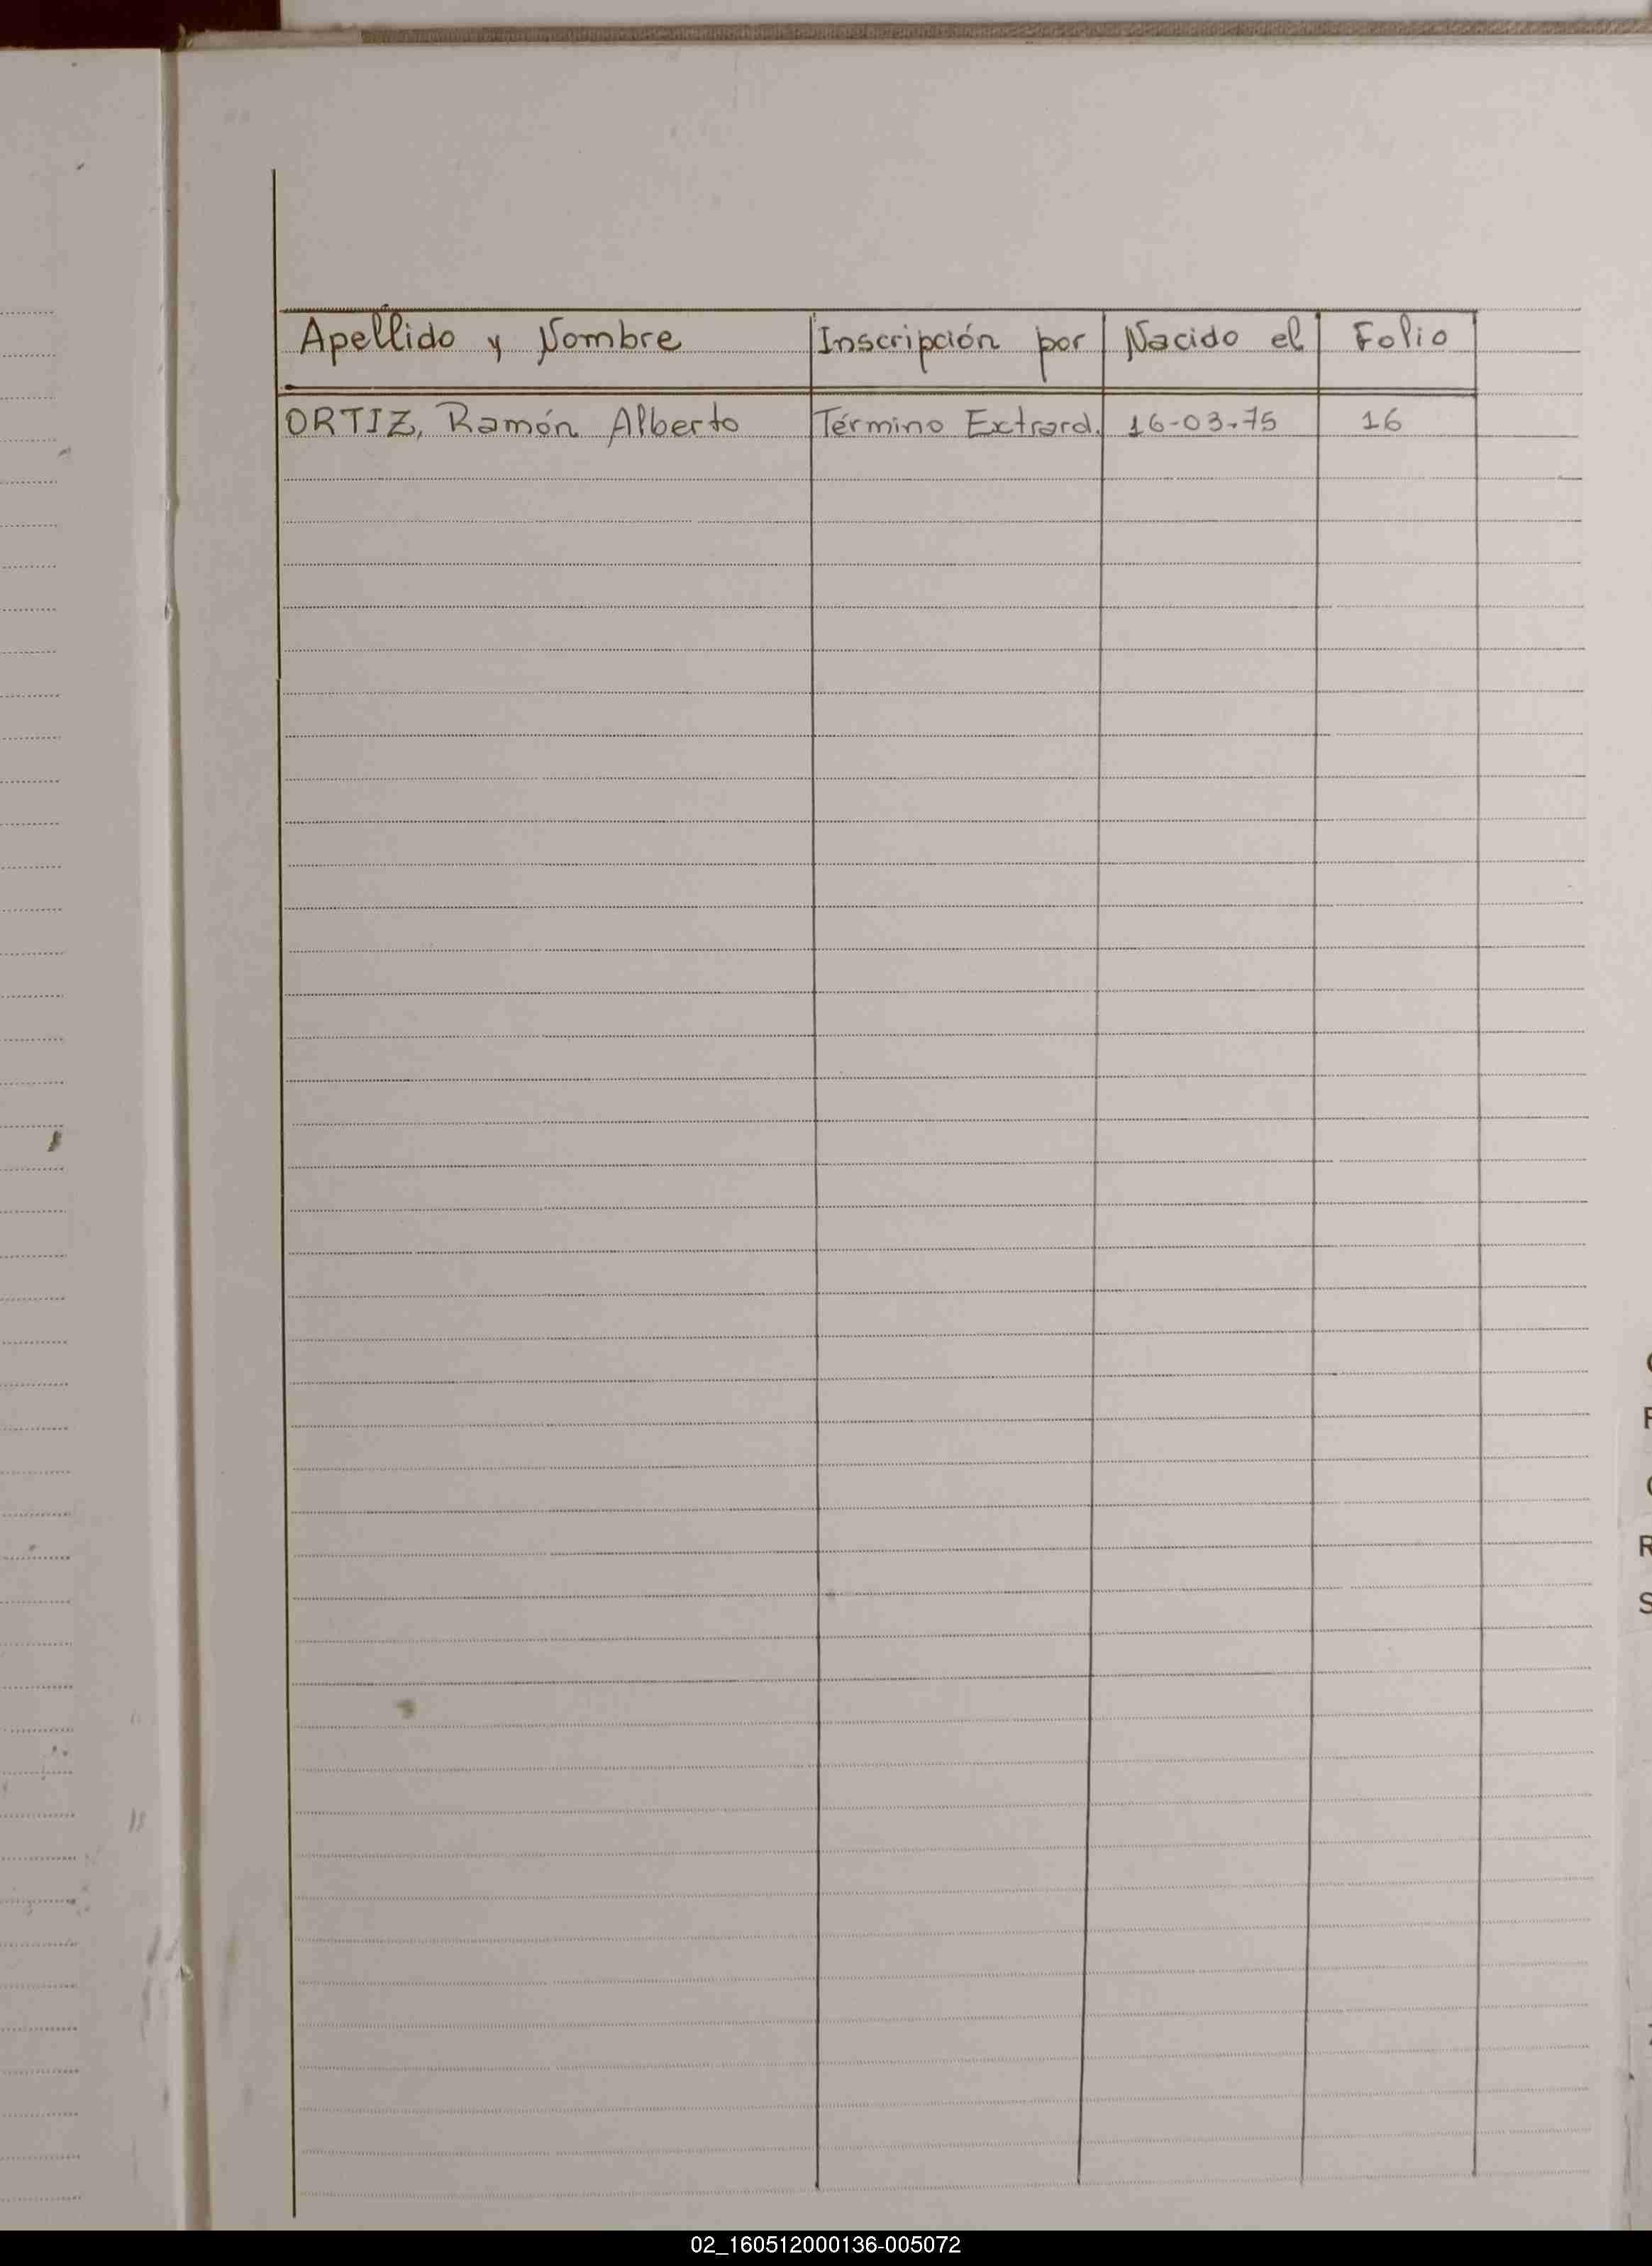 Apellido y Nombre Inscripción por Nacido el Folio
ORTIZ, Ramón Alberto Término Extrard. 16-03-75 16
F
R
S
02_160512000136-005072